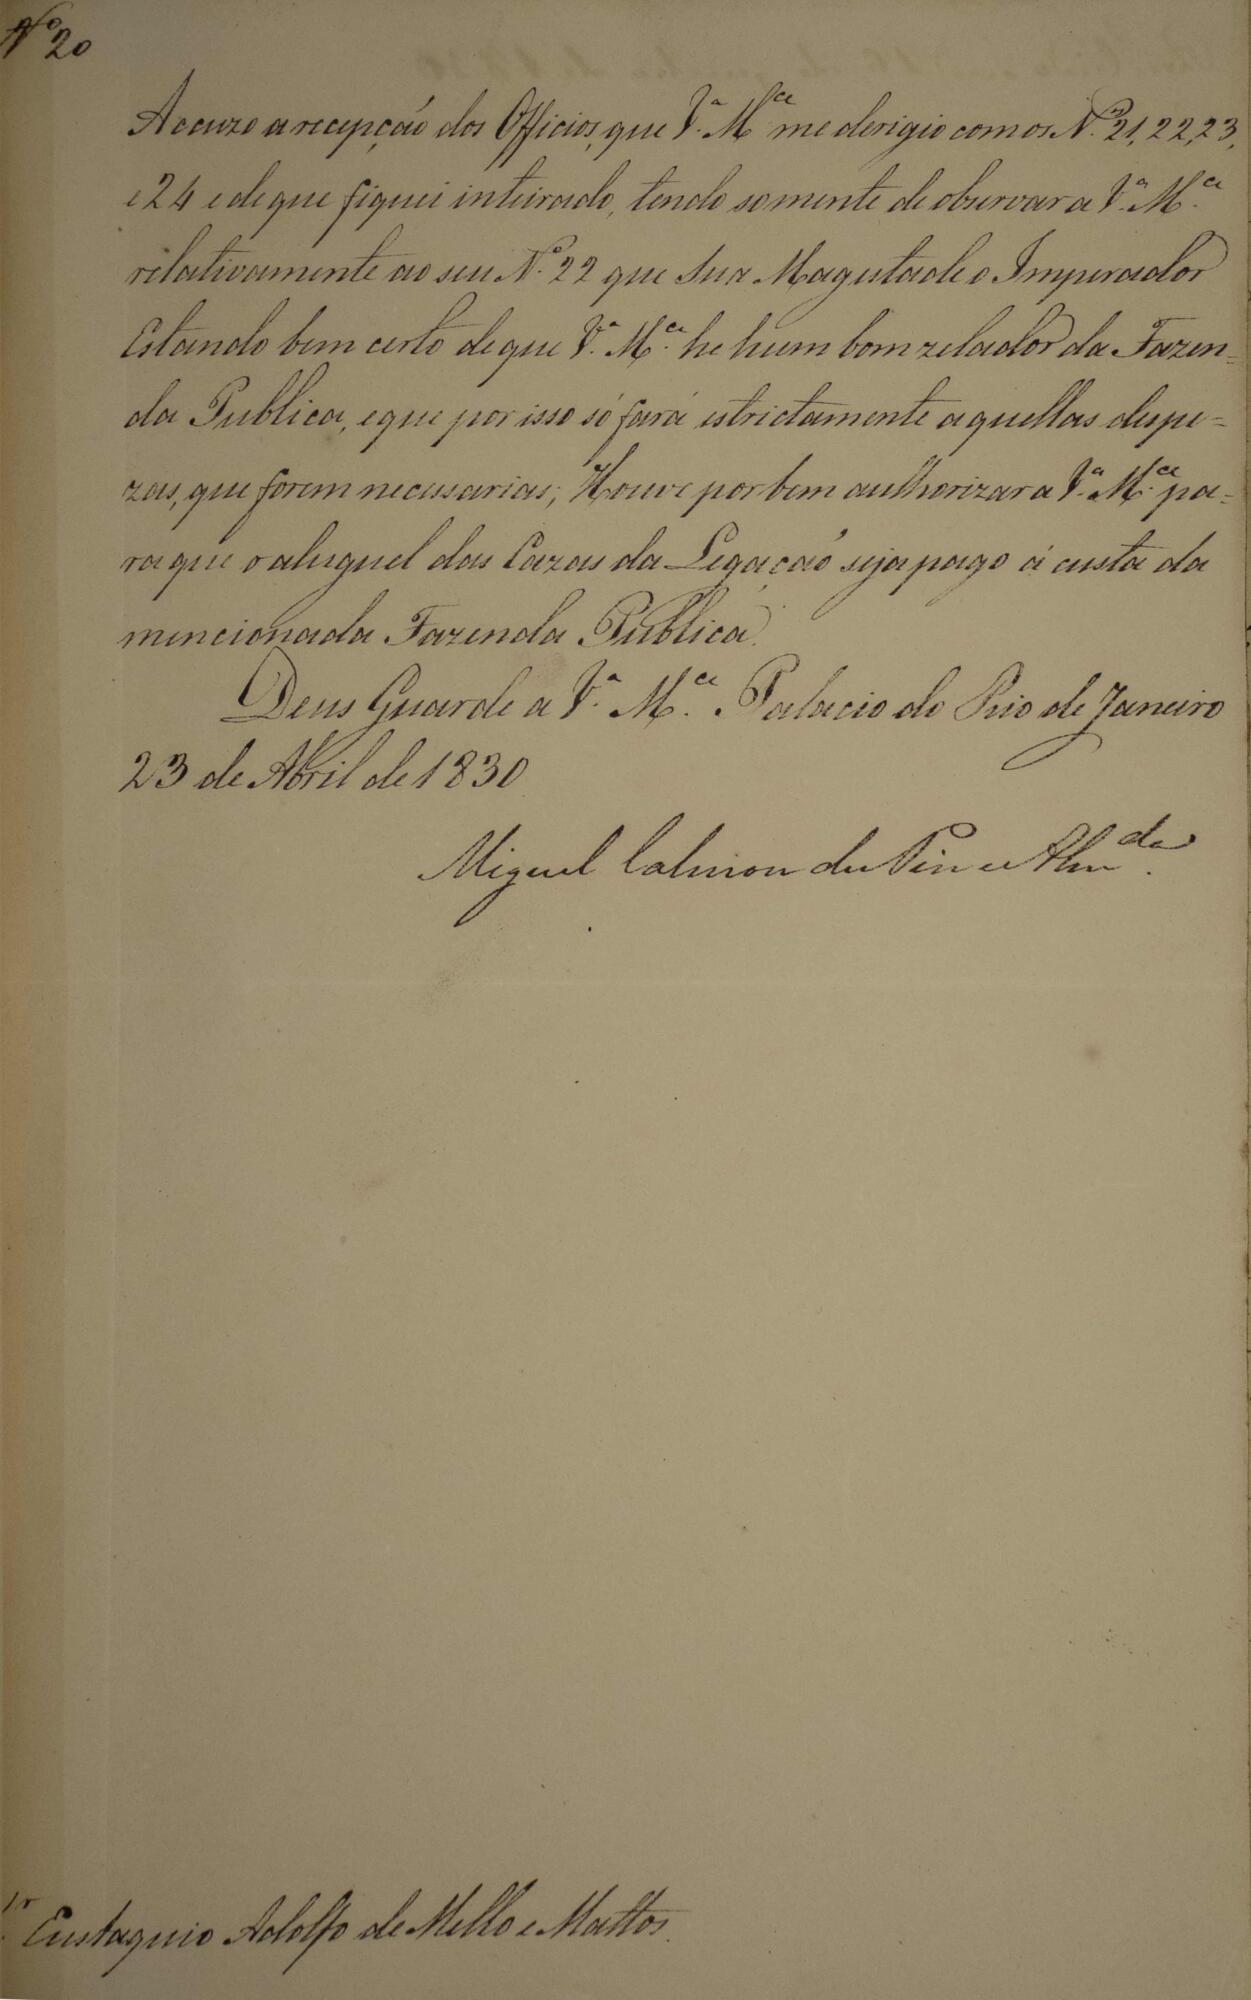 Nº 20
Accuzo a recepção dos Officios, que V.ª M.ce me derigio com os N.os 21, 22, 23,
e 24 e de que fiquei inteirado, tendo somente de observar a V.ª M.ce
relativamente ao seu N.º 22 que Sua Magestade o Imperador
Estando bem certo de que V.ª M.ce he hum bom zelador da Fazen-
da Publica, e que por isso só fará estrictamente aquellas despe-
zas, que forem necessarias; Houve por bem authorizar a V.ª M.ce pa-
ra que o aluguel das Cazas da Legação seja pago á custa da
mencionada Fazenda Publica.
Deus Guarde a V.ª M.ce Palacio do Rio de Janeiro
23 de Abril de 1830
Miguel Calmon du Pin e Alm.da
Eustaquio Adolfo de Mello e Mattos.